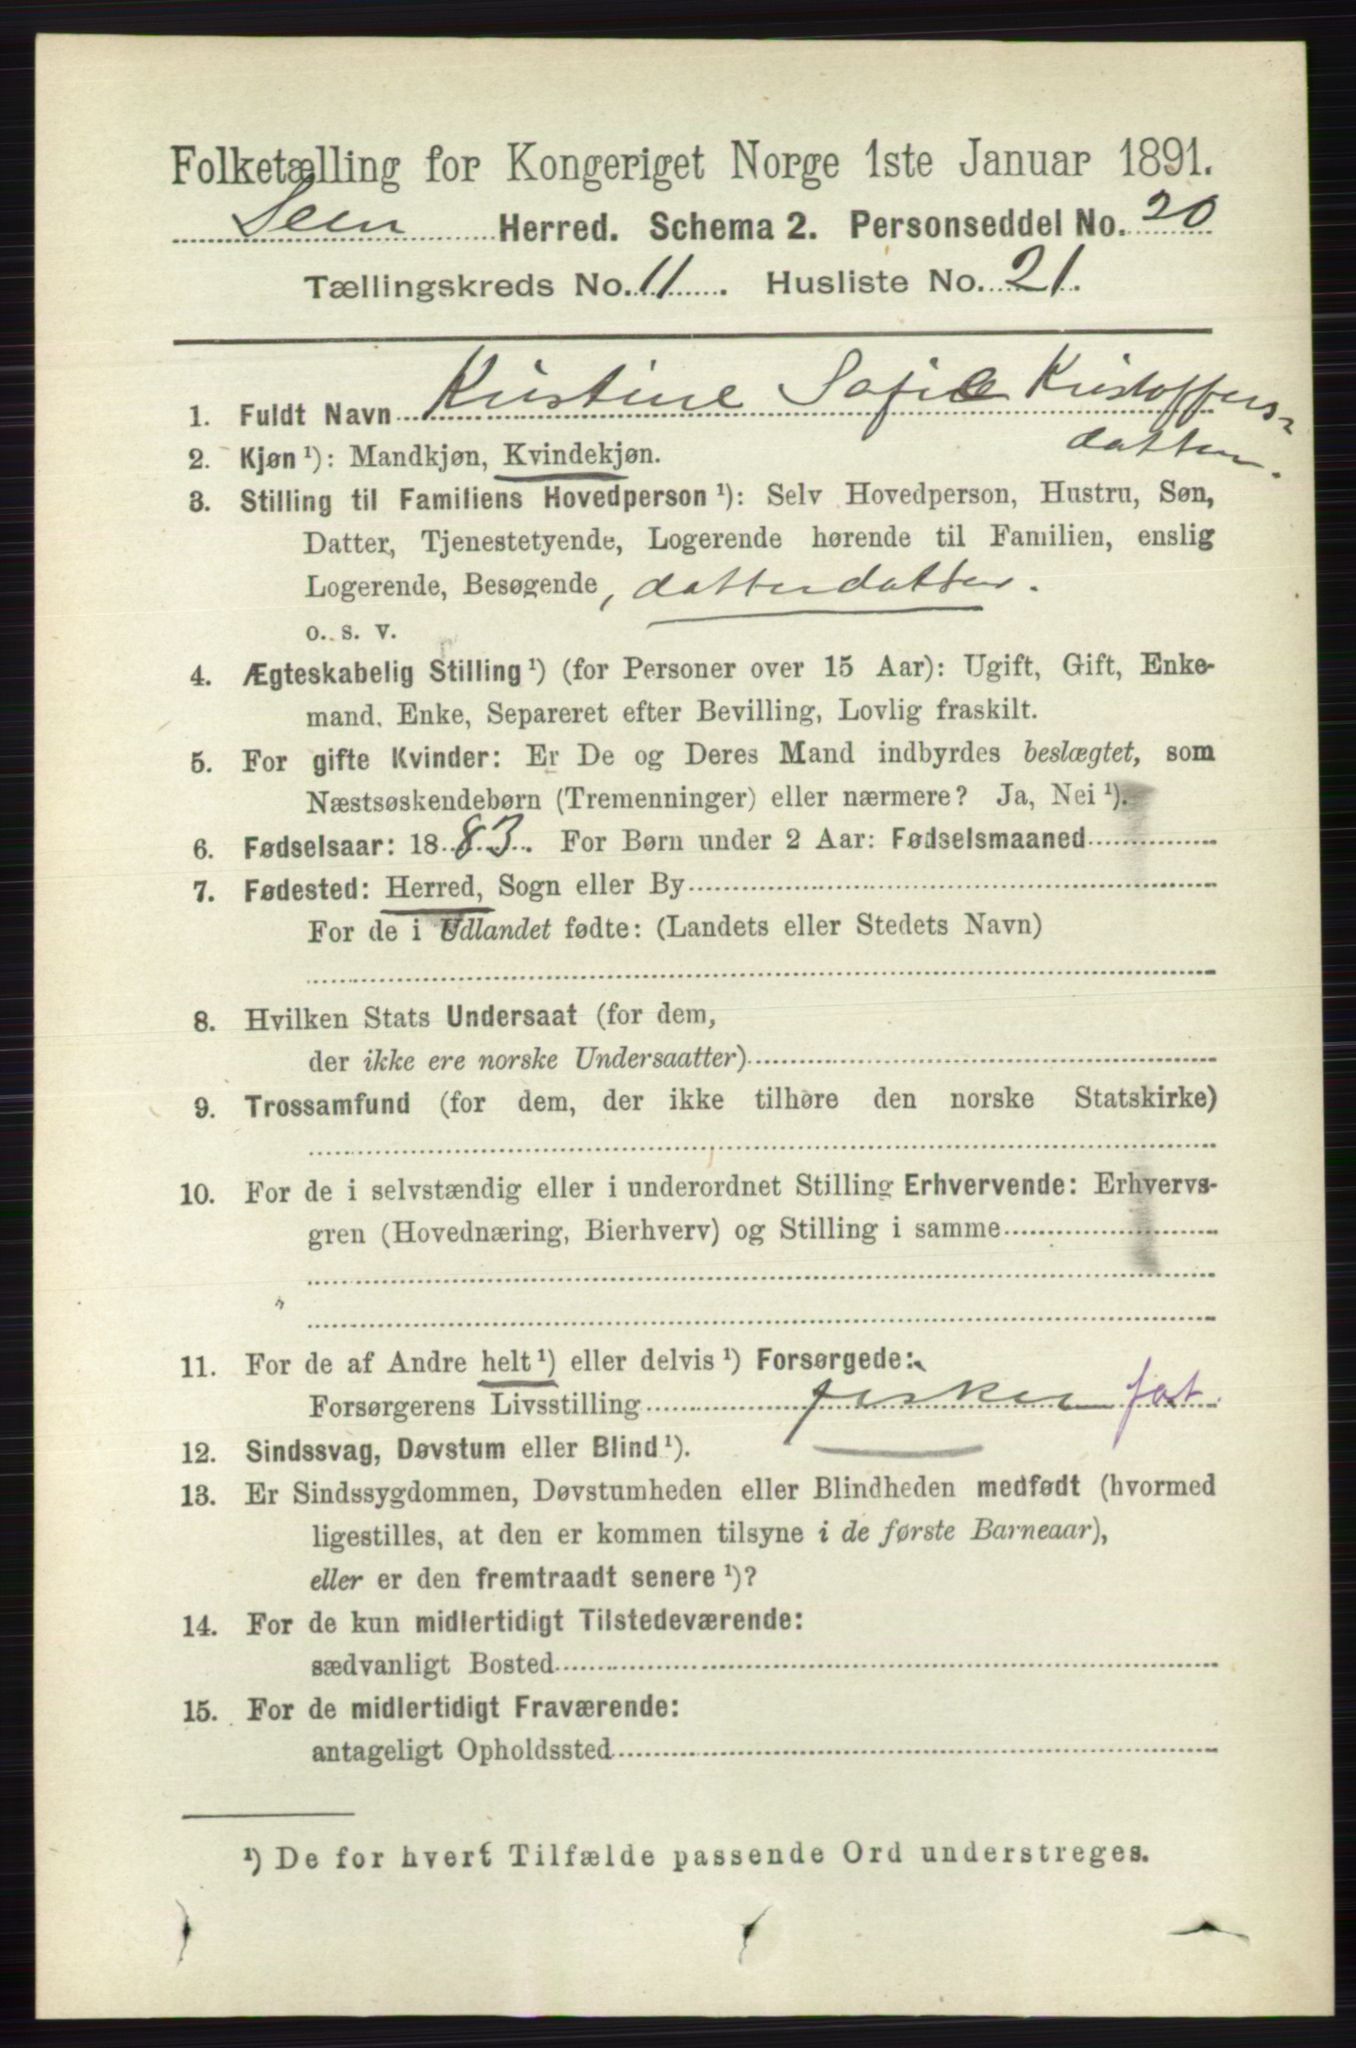 Folketælling for Kongeriget Norge 1ste Januar 1891.
Sem Herred. Schema 2. Personseddel No. 20
Tællingskreds No. 11. Husliste No. 21.
1. Fuldt Navn Kristine Sofie Kristoffers-
datter.
2. Kjøn ¹): Mandkjøn, Kvindekjøn.
3. Stilling til Familiens Hovedperson ¹): Selv Hovedperson, Hustru, Søn,
Datter, Tjenestetyende, Logerende hørende til Familien, enslig
Logerende, Besøgende, datterdatter.
o. s. v.
4. Ægteskabelig Stilling ¹) (for Personer over 15 Aar): Ugift, Gift, Enke-
mand, Enke, Separeret efter Bevilling, Lovlig fraskilt.
5. For gifte Kvinder: Er De og Deres Mand indbyrdes beslægtet, som
Næstsøskendebørn (Tremenninger) eller nærmere? Ja, Nei ¹).
6. Fødselsaar: 1883. For Børn under 2 Aar: Fødselsmaaned
7. Fødested: Herred, Sogn eller By
For de i Udlandet fødte: (Landets eller Stedets Navn)
8. Hvilken Stats Undersaat (for dem,
der ikke ere norske Undersaatter)
9. Trossamfund (for dem, der ikke tilhøre den norske Statskirke)
10. For de i selvstændig eller i underordnet Stilling Erhvervende: Erhvervs-
gren (Hovednæring, Bierhverv) og Stilling i samme
11. For de af Andre helt ¹) eller delvis ¹) Forsørgede:
Forsørgerens Livsstilling fisker fat.
12. Sindssvag, Døvstum eller Blind ¹).
13. Er Sindssygdommen, Døvstumheden eller Blindheden medfødt (hvormed
ligestilles, at den er kommen tilsyne i de første Barneaar),
eller er den fremtraadt senere ¹)?
14. For de kun midlertidigt Tilstedeværende:
sædvanligt Bosted
15. For de midlertidigt Fraværende:
antageligt Opholdssted
¹) De for hvert Tilfælde passende Ord understreges.